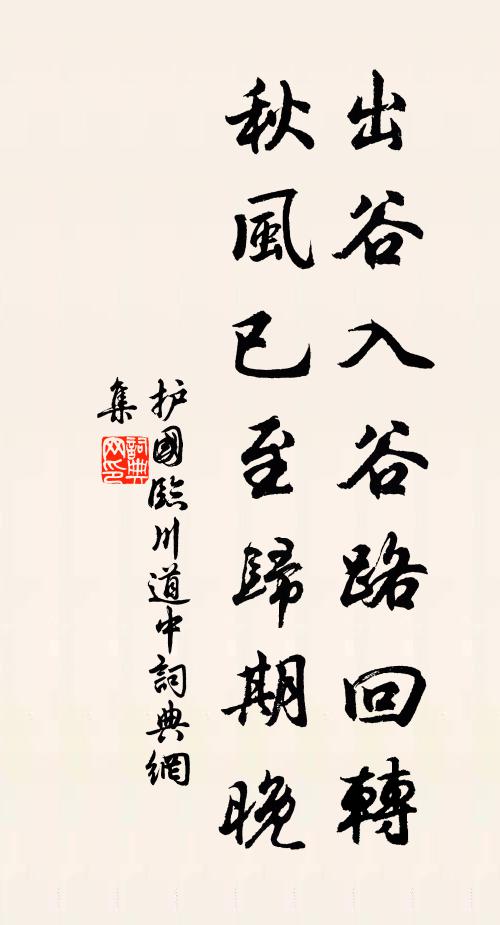 出谷入谷路回轉
秋風已至歸期晚
护國臨川道中詞典網
集
詞典
网印